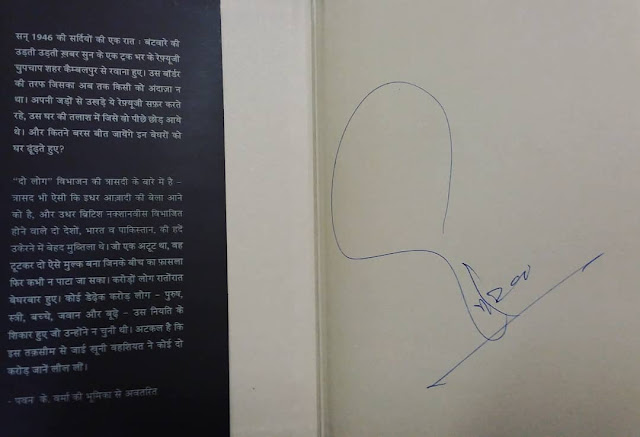 सन् 1946 की सर्दियों की एक रात : बंटवारे की
उड़ती उड़ती ख़बर सुन के एक ट्रक भर के रेफ़्यूजी
चुपचाप शहर कैम्बलपुर से रवाना हुए। उस बॉर्डर
की तरफ़ जिसका अब तक किसी को अंदाज़ा न
था। अपनी जड़ों से उखड़े ये रेफ़्यूजी सफ़र करते
रहे, उस घर की तलाश में जिसे वो पीछे छोड़ आये
थे। और कितने बरस बीत जायेंगे इन बेघरों को
घर ढूंढ़ते हुए?
"दो लोग" विभाजन की त्रासदी के बारे में है –
त्रासद भी ऐसी कि इधर आज़ादी की बेला आने
को है, और उधर ब्रिटिश नक्शानवीस विभाजित
होने वाले दो देशों, भारत व पाकिस्तान, की हदें
उकेरने में बेहद मुब्तिला थे। जो एक अटूट था, वह
टूटकर दो ऐसे मुल्क बना जिनके बीच का फ़ासला
फिर कभी न पाटा जा सका। करोड़ों लोग रातोंरात
बेघरबार हुए। कोई डेढ़ेक करोड़ लोग – पुरुष,
स्त्री, बच्चे, जवान और बूढ़े – उस नियति के
शिकार हुए जो उन्होंने न चुनी थी। अटकल है कि
इस तक़सीम से जाई खूनी वहशियत ने कोई दो
करोड़ जानें लील लीं।
- पवन के. वर्मा की भूमिका से अवतरित